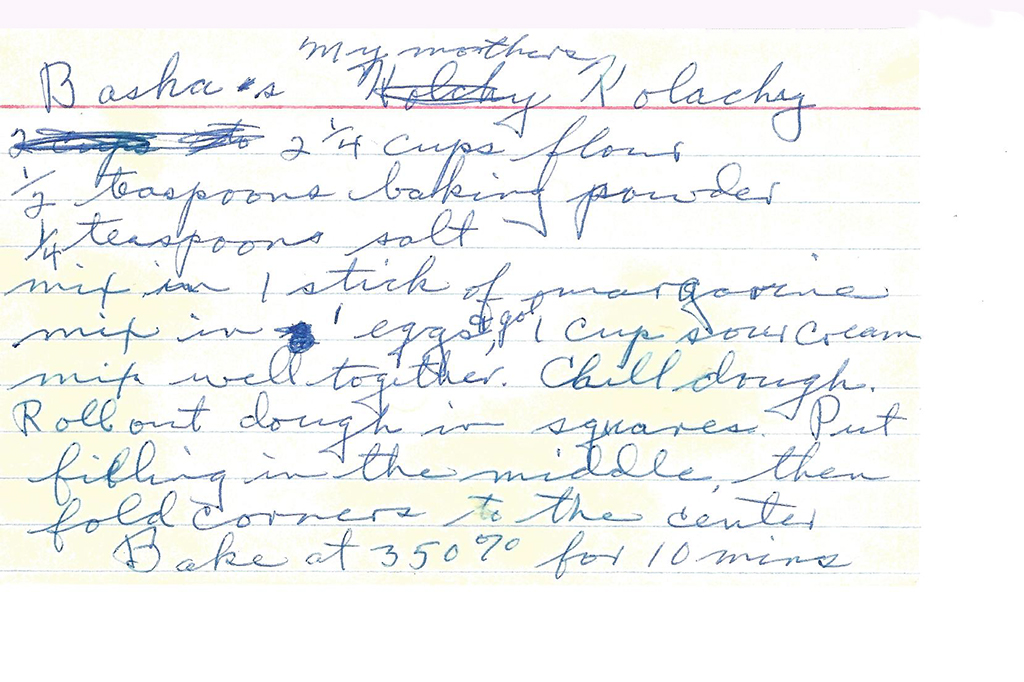 my mothers
Basha's Kolachy
2 1/4 cups flour
1/2 teaspoons baking powder
1/4 teaspoons salt
mix in 1 stick of margarine
mix in 1 eggs, 1 cup sour cream
mix well together. Chill dough.
Roll out dough in squares. Put
filling in the middle, then
fold corners to the center
Bake at 350% for 10 mins